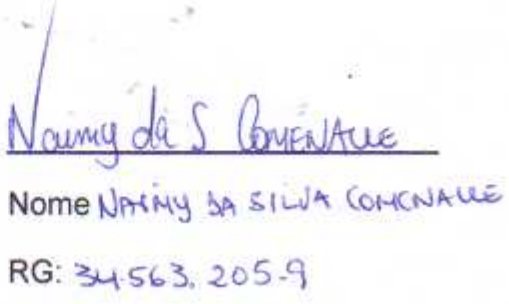 Naimy da S Comenalle
Nome NAIMY DA SILVA COMENALLE
RG: 34.563.205-9